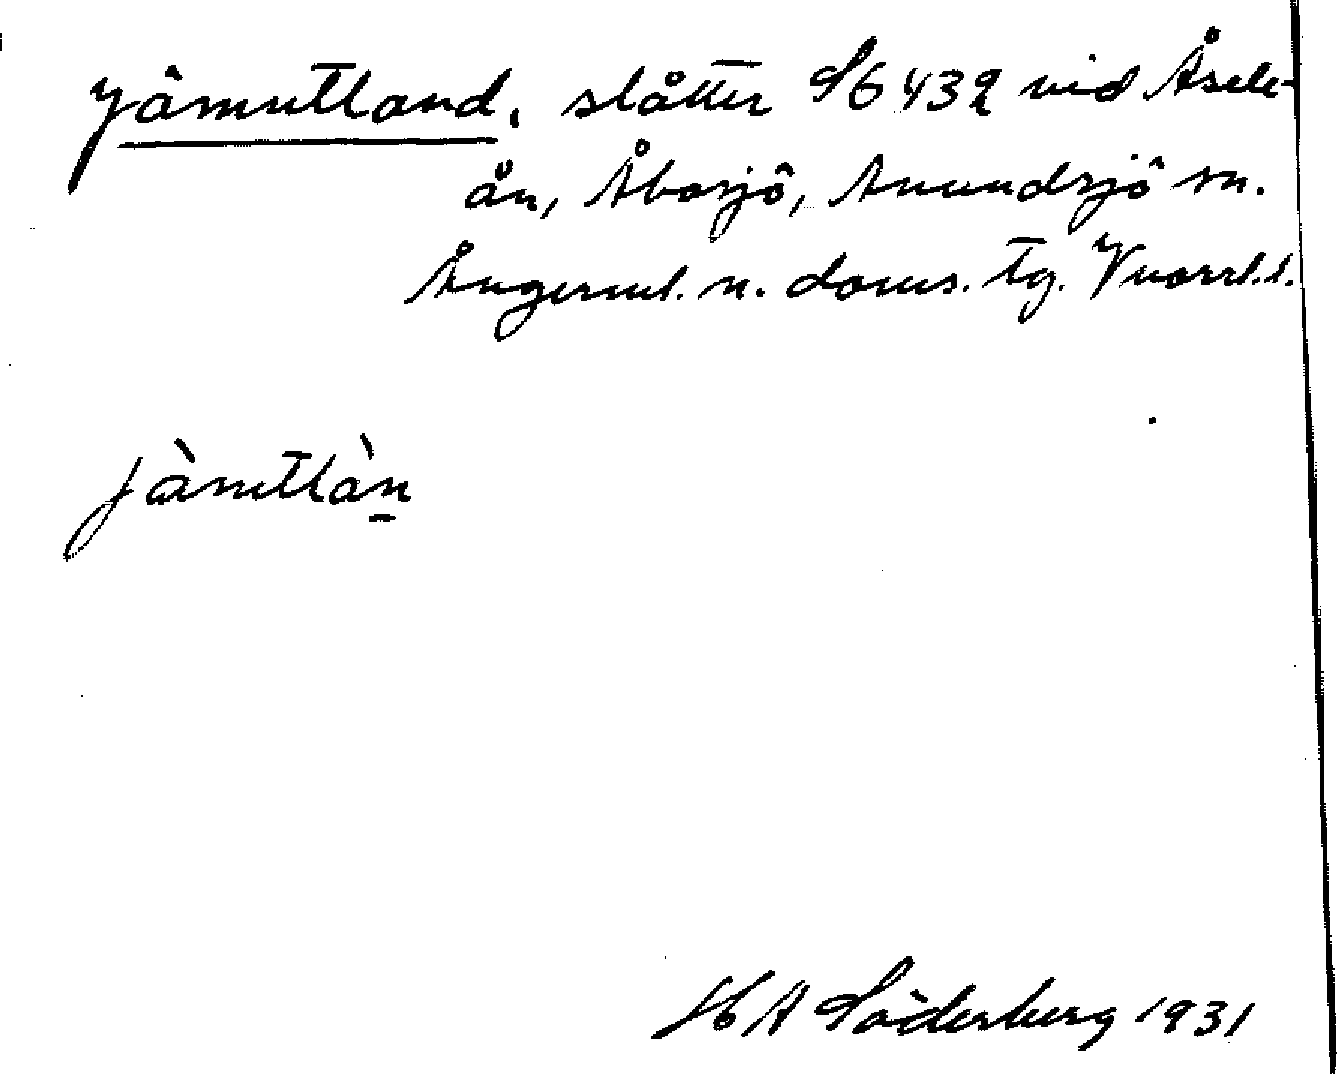 Jämtland, slåtter S6439 vid Åsele-
ån, Åbosjö, Anundsjö sn.
Ångerml. n. doms. tg. Vnorrl. l.
jàmtlàn
H A Söderberg 1931